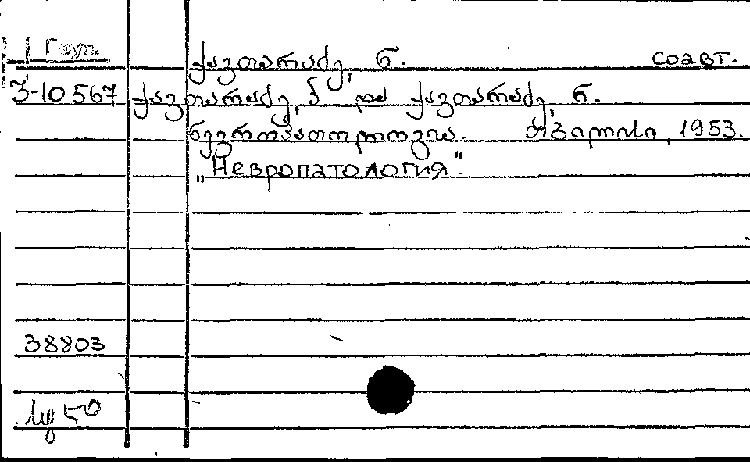 Груз.
ქავთარაძე, ნ. соавт.
3-10567 ქავთარაძე, პ. და ქავთარაძე, ნ.
ნევროპათოლოგია. თბილისი, 1953.
„Невропатология"
38803